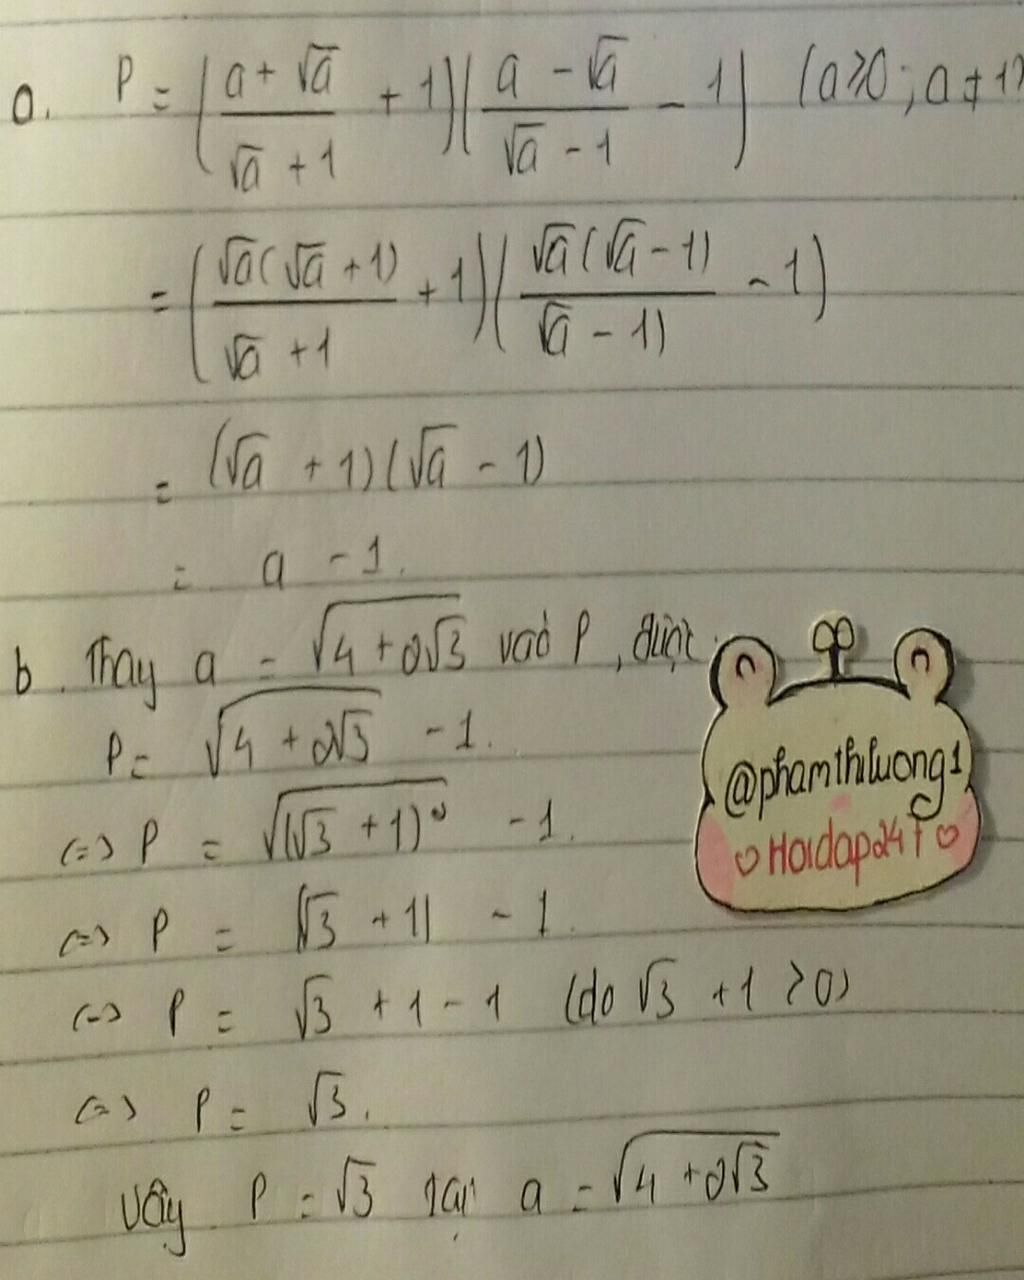 a. P = ( (a + √a)/(√a + 1) + 1)( (a - √a)/(√a - 1) - 1) (a ≥ 0; a ≠ 1)
= ( √a(√a + 1)/(√a + 1) + 1)( √a(√a - 1)/(√a - 1) - 1)
= (√a + 1)(√a - 1)
= a - 1.
b. Thay a = √(4 + 2√3) vào P, được
P = √(4 + 2√3) - 1.
(=) P = √((√3 + 1)²) - 1.
(=) P = |√3 + 1| - 1.
(=) P = √3 + 1 - 1 (do √3 + 1 > 0)
(=) P = √3.
Vậy P = √3 tại a = √(4 + 2√3)
@phamthiluong1
♡ Hoidap247 ♡